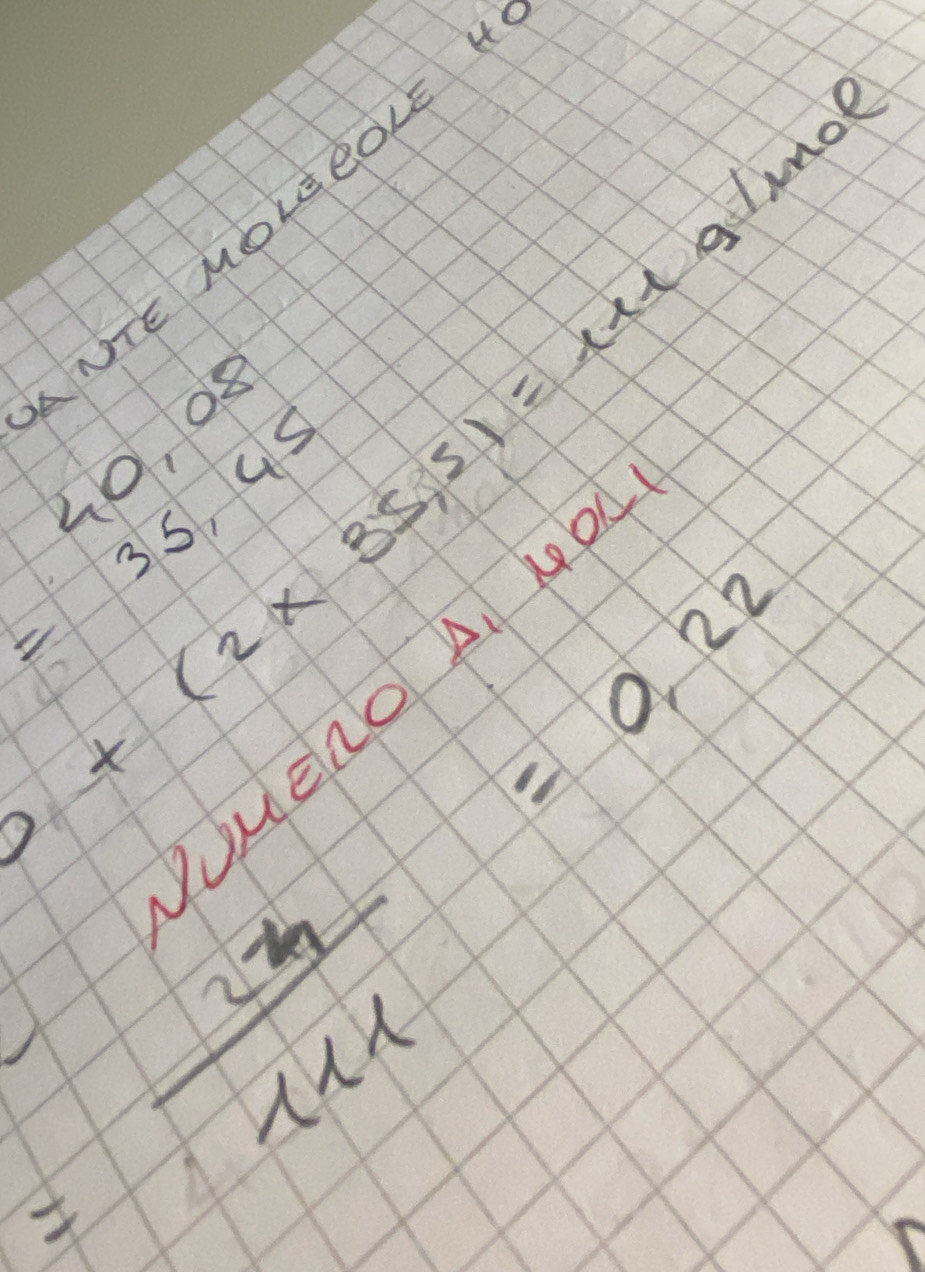 QUANTE MOLECOLE HO
40,08
= 35,45
0 + (2 x 35,5) = 111 g/mol
NUMERO DI MOLI
= 0,22
111
=